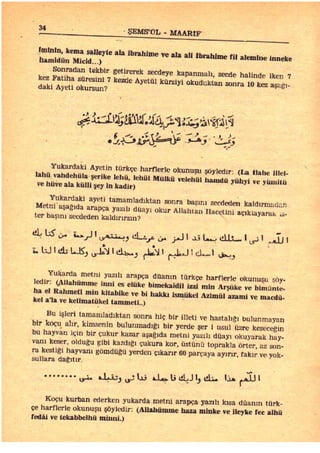 34
ŞEMS'ÜL - MAARİF
İminin, kema salleyte ala ibrahime ve ala ali İbrahime fil alemine inneke
hamidün Micid...)
Sonradan tekbir getirerek secdeye kapanmalı, secde halinde iken 7
kez Fatiha süresini 7 kezde Ayetül kürsiyi okuduktan sonra 10 kez aşağı-
daki Ayeti okursun?
Yukardaki Ayetin türkçe harflerle okunuşu şöyledir: (La ilahe illel-
lahü vahdehüla şerike lehü, lehül Mülkü velehül hamdü yühyi ve yümitü
ve hüve ala külli şey in kadir)
Yukardaki ayeti tamamladıktan sonra başını secdeden kaldırmadan
Metni aşağıda arapça yazılı düayı okur Allahtan Hacetini açıklayarak is-
ter başını secdeden kaldırırsın?
Yukarda metni yazılı arapça düanın türkçe harflerle okunuşu şöy-
ledir: (Allahümme inni es elüke bimekaidil izzi min Arşüke ve bimünte-
ha el Rahmeti min kitabike ve bi hakkı ismükel Azimül azami ve macdü-
kel a'la ve kelimatükel tammeti..)
Bu işleri tamamladıktan sonra hiç bir illeti ve hastalığı bulunmayan
bir koçu alır, kimsenin bulunmadığı bir yerde şer i usul üzre keseceğin
bu hayvan için bir çukur kazar aşağıda metni yazılı düayı okuyarak hay-
vanı keser, olduğu gibi kandığı çukura kor, üstünü toprakla örter, az son-
ra kestiği hayvanı gömdüğü yerden çıkarır 60 parçaya ayırır, fakir ve yok-
sullara dağıtır.
Koçu kurban ederken yukarda metni arapça yazılı kısa düanın türk-
çe harflerle okunuşu şöyledir: (Allahümme haza minke ve ileyke fee alhü
fedâi ve tekabbelhü minni.)